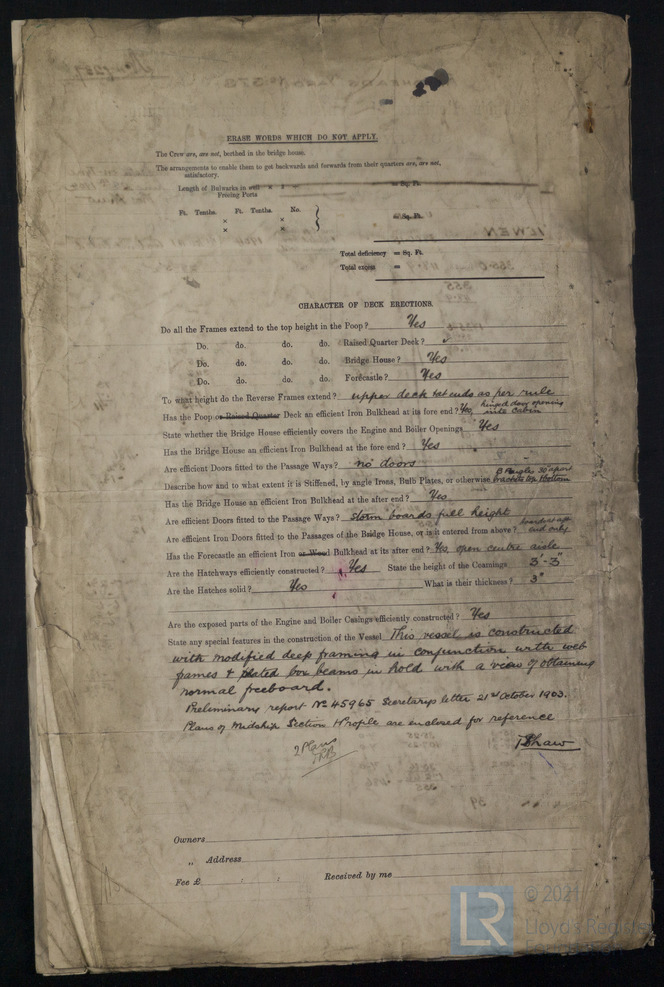 ERASE WORDS WHICH DO NOT APPLY.
The Crew are, are not, berthed in the bridge house.
The arrangements to enable them to get backwards and forwards from their quarters are, are not,
satisfactory.
Length of Bulwarks in well × = Sq. Ft.
Freeing Ports
Ft. Tenths. Ft. Tenths. No.
× × } = Sq. Ft.
× ×
Total deficiency = Sq. Ft.
Total excess =
CHARACTER OF DECK ERECTIONS.
Do all the Frames extend to the top height in the Poop? Yes
Do. do. do. do. Raised Quarter Deck? ✓
Do. do. do. do. Bridge House? Yes
Do. do. do. do. Forecastle? Yes
To what height do the Reverse Frames extend? upper deck at ends as per rule
Has the Poop or Raised Quarter Deck an efficient Iron Bulkhead at its fore end? Yes, hinged door opening into Cabin
State whether the Bridge House efficiently covers the Engine and Boiler Openings Yes
Has the Bridge House an efficient Iron Bulkhead at the fore end? Yes
Are efficient Doors fitted to the Passage Ways? no doors
Describe how and to what extent it is Stiffened, by angle Irons, Bulb Plates, or otherwise B Angle 30" apart brackets top & bottom
Has the Bridge House an efficient Iron Bulkhead at the after end? Yes
Are efficient Doors fitted to the Passage Ways? storm boards full height
Are efficient Iron Doors fitted to the Passages of the Bridge House, or is it entered from above? boards at aft end only
Has the Forecastle an efficient Iron or Wood Bulkhead at its after end? Yes, open centre aisle
Are the Hatchways efficiently constructed? Yes State the height of the Coamings 3'-3"
Are the Hatches solid? Yes What is their thickness? 3"
Are the exposed parts of the Engine and Boiler Casings efficiently constructed? Yes
State any special features in the construction of the Vessel This vessel is constructed
with modified deep framing in conjunction with web
frames & plated box beams in hold with a view of obtaining
normal freeboard.
Preliminary report No 45965 Secretarys letter 21st October 1903.
Plans of Midship Section & Profile are enclosed for reference
2 Plans
Shaw
Owners
„ Address
Fee £ : : Received by me
LR
© 2021
Lloyd's Register
Foundation